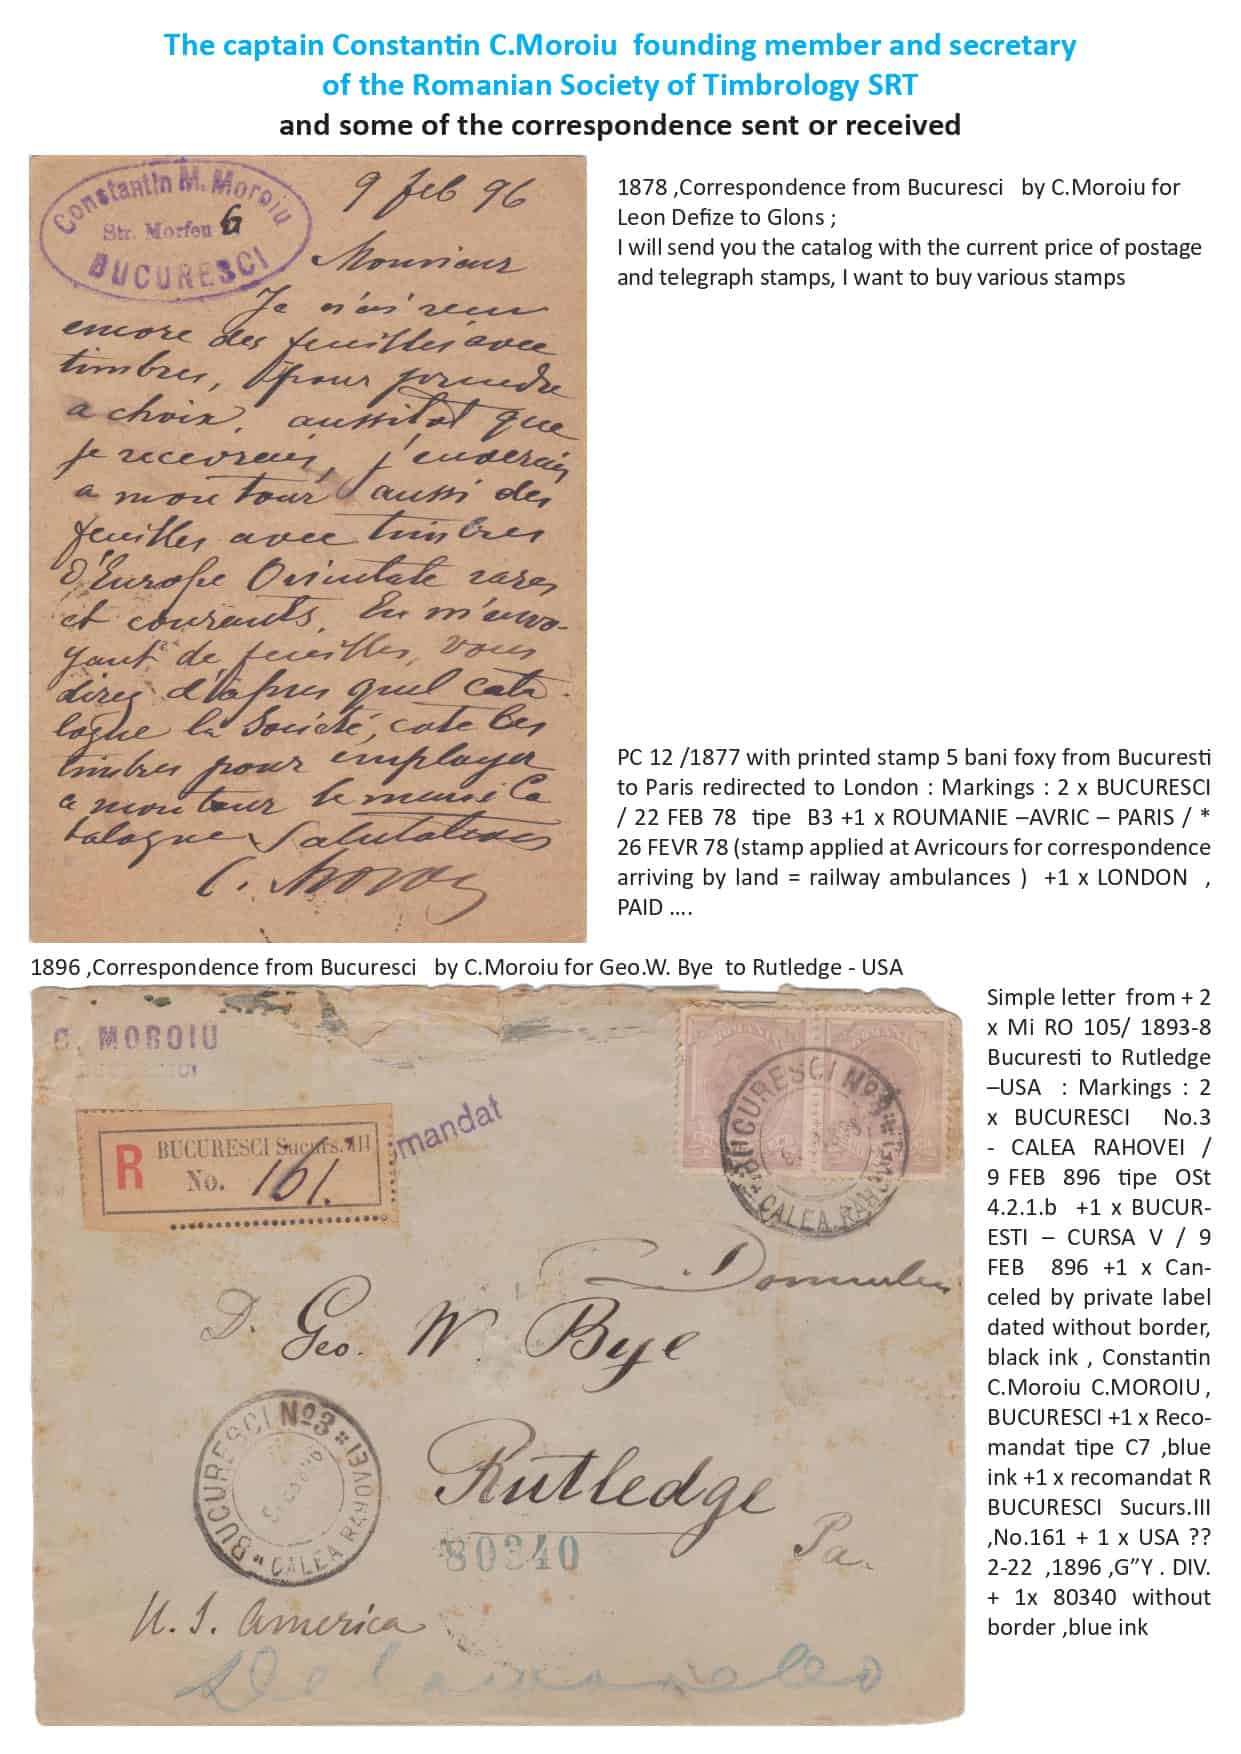 The captain Constantin C.Moroiu founding member and secretary
of the Romanian Society of Timbrology SRT
and some of the correspondence sent or received
Constantin M. Moroiu
Str. Morfeu 6
BUCURESCI
9 feb 96
Monsieur
Je n'ai reçu
encore des feuilles avec
timbres, pour prendre
a choix. aussitot que
je recevrais, j'enverais
a mon tour aussi des
feuilles avec timbres
d'Europe Orientale rares
et courants. En m'envo-
yant de feuilles, vous
direz d'apres quel cata-
logue la Société, cote les
timbres pour employer
a mon tour le meme Ca
talogue Salutations
C. Moroiu
1878 ,Correspondence from Bucuresci by C.Moroiu for
Leon Defize to Glons ;
I will send you the catalog with the current price of postage
and telegraph stamps, I want to buy various stamps
PC 12 /1877 with printed stamp 5 bani foxy from Bucuresti
to Paris redirected to London : Markings : 2 x BUCURESCI
/ 22 FEB 78 tipe B3 +1 x ROUMANIE –AVRIC – PARIS / *
26 FEVR 78 (stamp applied at Avricours for correspondence
arriving by land = railway ambulances ) +1 x LONDON ,
PAID ....
1896 ,Correspondence from Bucuresci by C.Moroiu for Geo.W. Bye to Rutledge - USA
C. MOROIU
mandat
R BUCURESCI Sucurs.III
No. 161.
BUCURESCI No3
CALEA RAHOVEI
D. Geo. W. Bye
BUCURESCI No3
CALEA RAHOVEI
Rutledge
80340
Pa.
U. S. America
Simple letter from + 2
x Mi RO 105/ 1893-8
Bucuresti to Rutledge
–USA : Markings : 2
x BUCURESCI No.3
- CALEA RAHOVEI /
9 FEB 896 tipe OSt
4.2.1.b +1 x BUCUR-
ESTI – CURSA V / 9
FEB 896 +1 x Can-
celed by private label
dated without border,
black ink , Constantin
C.Moroiu C.MOROIU ,
BUCURESCI +1 x Reco-
mandat tipe C7 ,blue
ink +1 x recomandat R
BUCURESCI Sucurs.III
,No.161 + 1 x USA ??
2-22 ,1896 ,G”Y . DIV.
+ 1x 80340 without
border ,blue ink